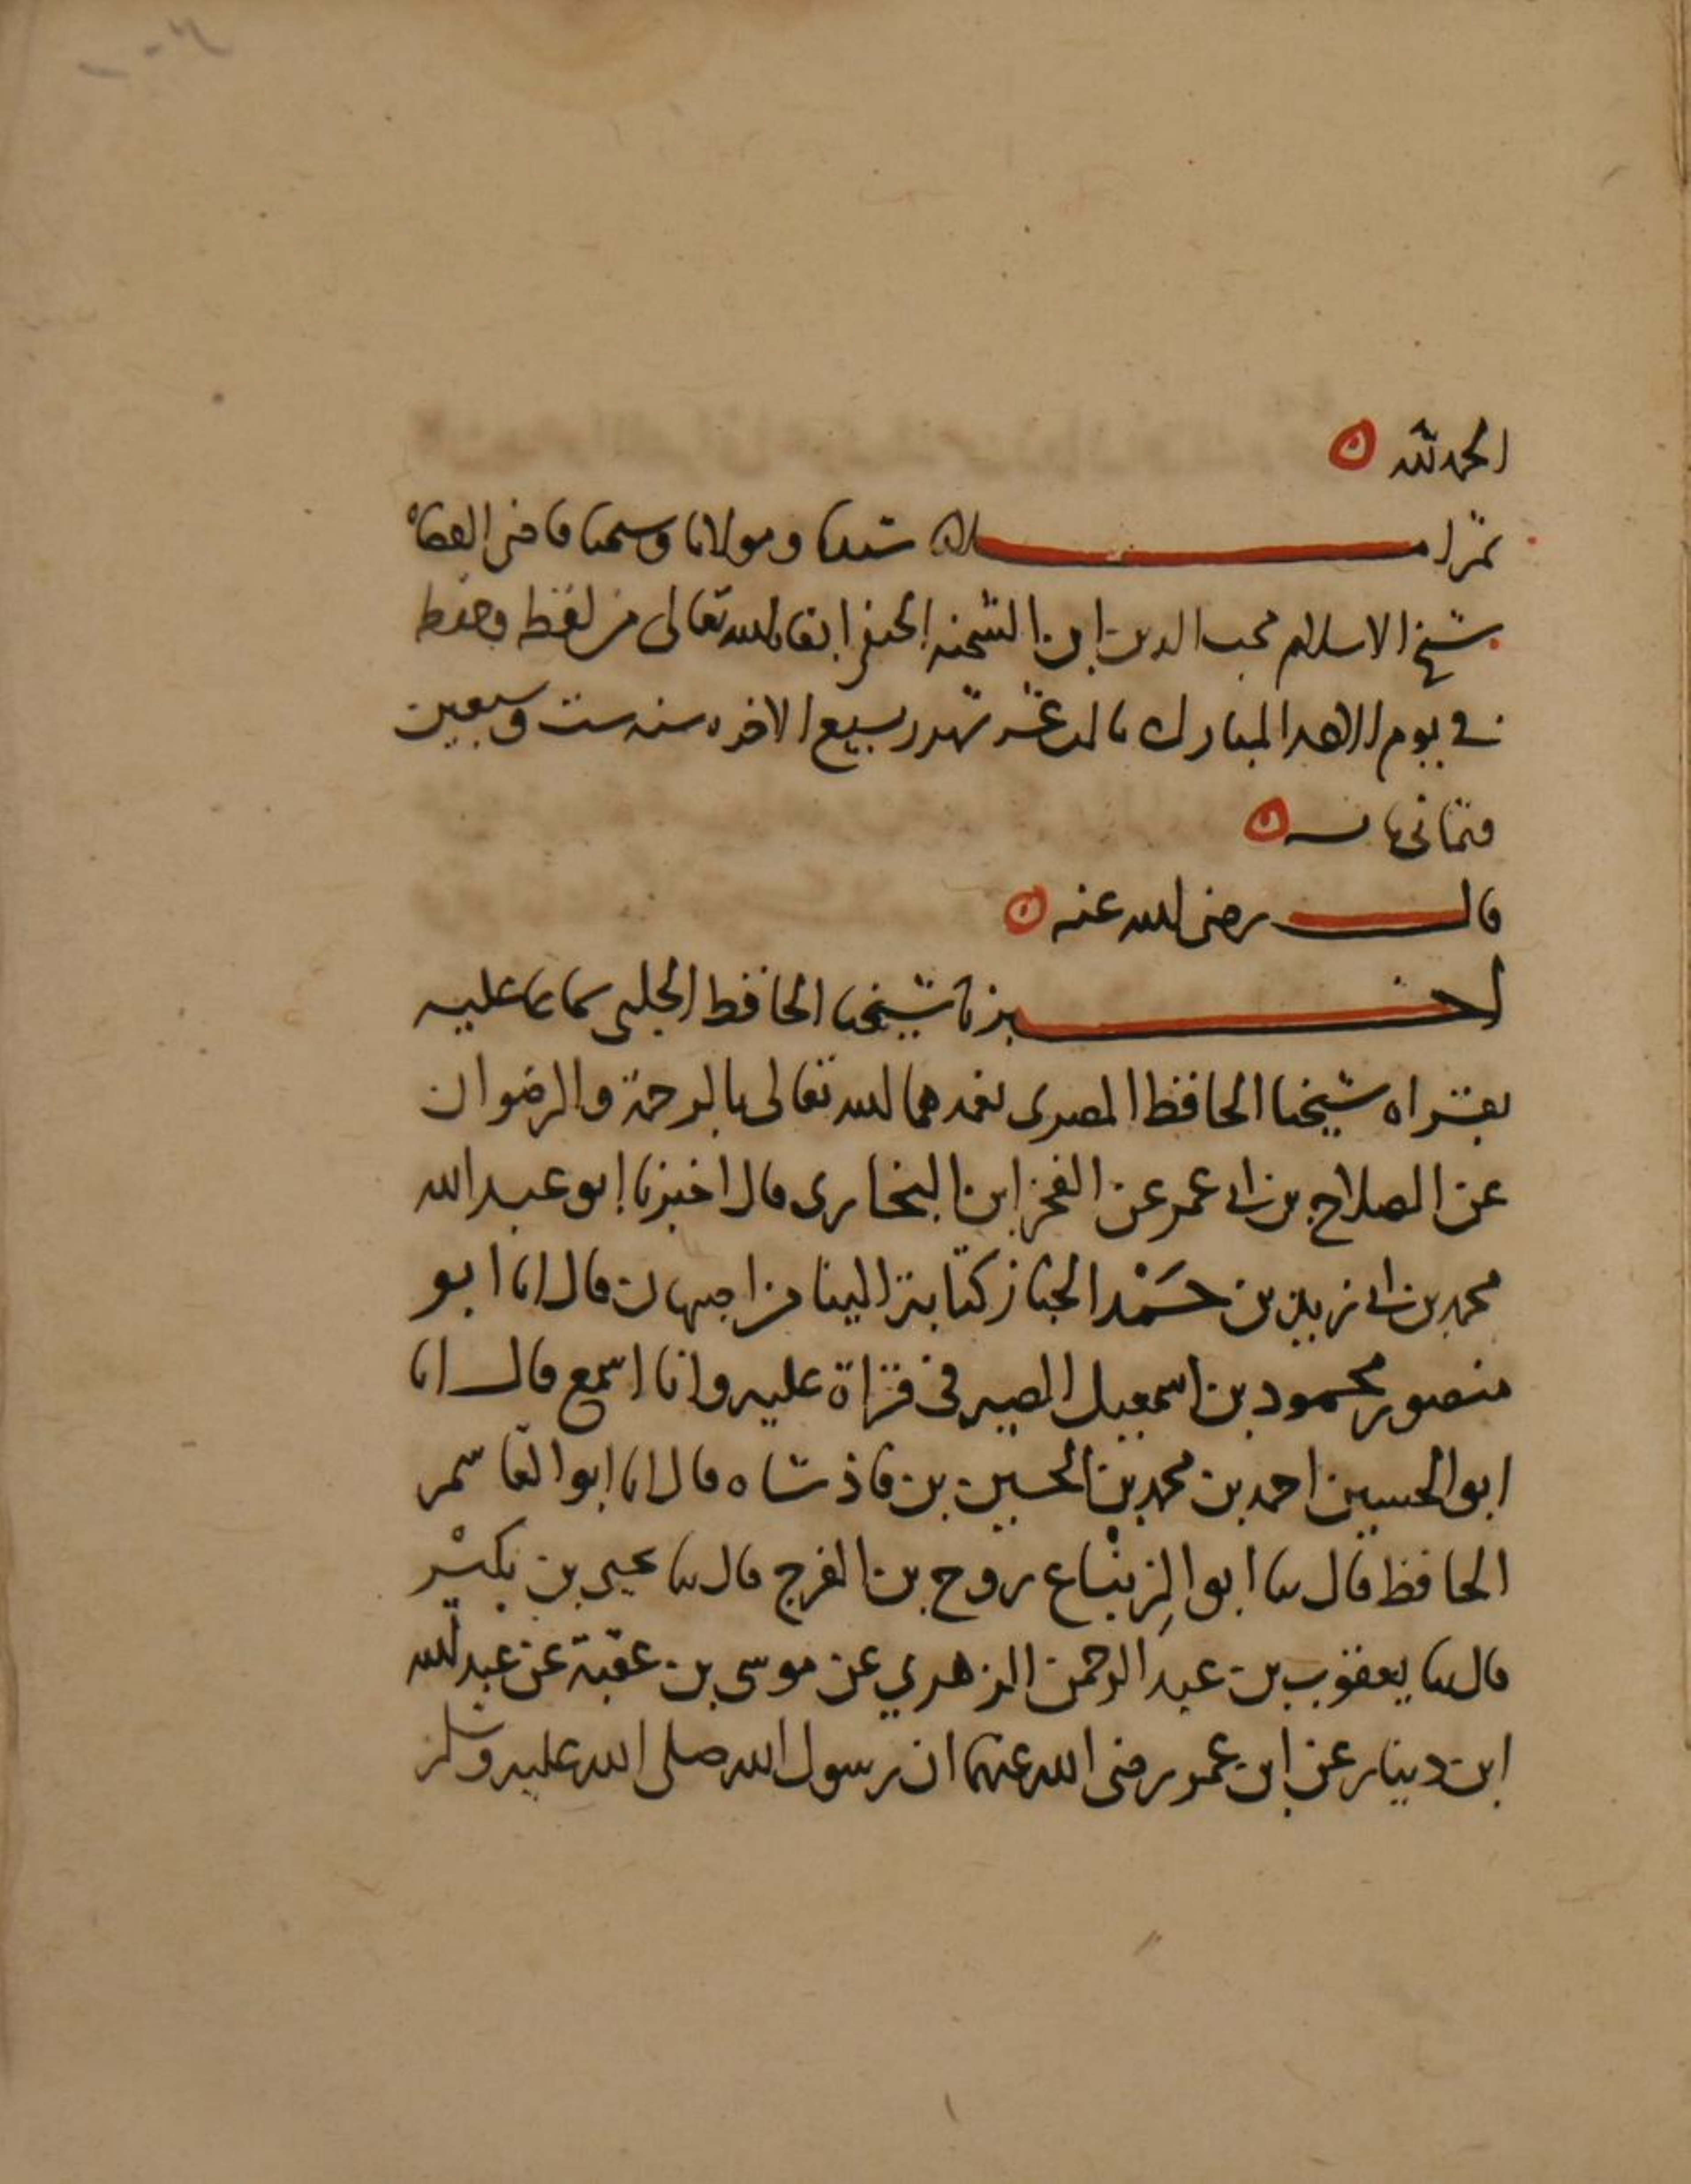 الحمد لله
ثم املاه سيدنا ومولانا وشيخنا قاضي القضاه
شيخ الاسلام محب الدين ابن الشحنه الحنفي ابقاه الله تعالى من لفظه وحفظه
في يوم الاحد المبارك شهر ربيع الاخر سنه ست وسبعين
وثماني مايه
قال رضي الله عنه
اخبرنا شيخنا الحافظ الحلبي سماعا عليه
بقراه شيخنا الحافظ المصري تغمدهما الله تعالى بالرحمة والرضوان
عن الصلاح بن ابي عمر عن الفخر ابن البخاري قال اخبرنا ابو عبد الله
محمد بن ابي زيد بن حَمْد الخباز كتابة الينا من اصبهان قال انا ابو
منصور محمود بن اسمعيل الصيرفي قراة عليه وانا اسمع قال انا
ابو الحسين احمد بن محمد بن الحسين بن فاذشاه قال انا ابو القاسم
الحافظ قال ثنا ابو الزِنْباع روح بن الفرج قال ثنا يحيى بن بكيْر
قال ثنا يعقوب بن عبد الرحمن الزهري عن موسى بن عقبة عن عبد الله
ابن دينار عن ابن عمر رضي الله عنهما ان رسول الله صلى الله عليه وسلم